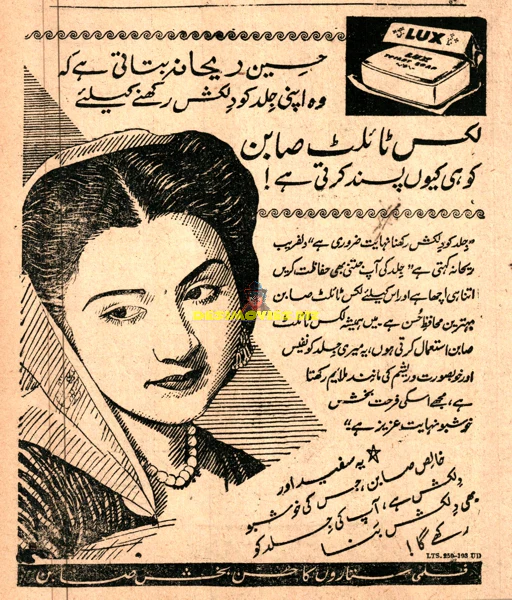 LUX
LUX
TOILET SOAP
حسین ریحانہ بتاتی ہے کہ
وہ اپنی جِلد کو دِلکش رکھنے کیلئے
لکس ٹائلٹ صابن
کو ہی کیوں پسند کرتی ہے!
”جِلد کو دِلکش رکھنا نہایت ضروری ہے“ دلفریب
ریحانہ کہتی ہے ”جِلد کی آپ جتنی بھی حفاظت کریں
اتنا ہی اچھا ہے اور اس کیلئے لکس ٹائلٹ صابن
بہترین محافظِ حُسن ہے۔ میں ہمیشہ لکس ٹائلٹ
صابن استعمال کرتی ہوں، یہ میری جِلد کو نفیس
اور خوبصورت و ریشم کی مانند ملایم رکھتا
ہے، مجھے اسکی فرحت بخش
خوشبو نہایت عزیز ہے“
یہ سفید اور
خالص صابن، جس کی خوشبو
دِلکش ہے، آپ کی جِلد کو
بھی دِلکش بنا
رکھے گا!
LTS. 250-193 UD
فلمی ستاروں کا حسن بخش صابن